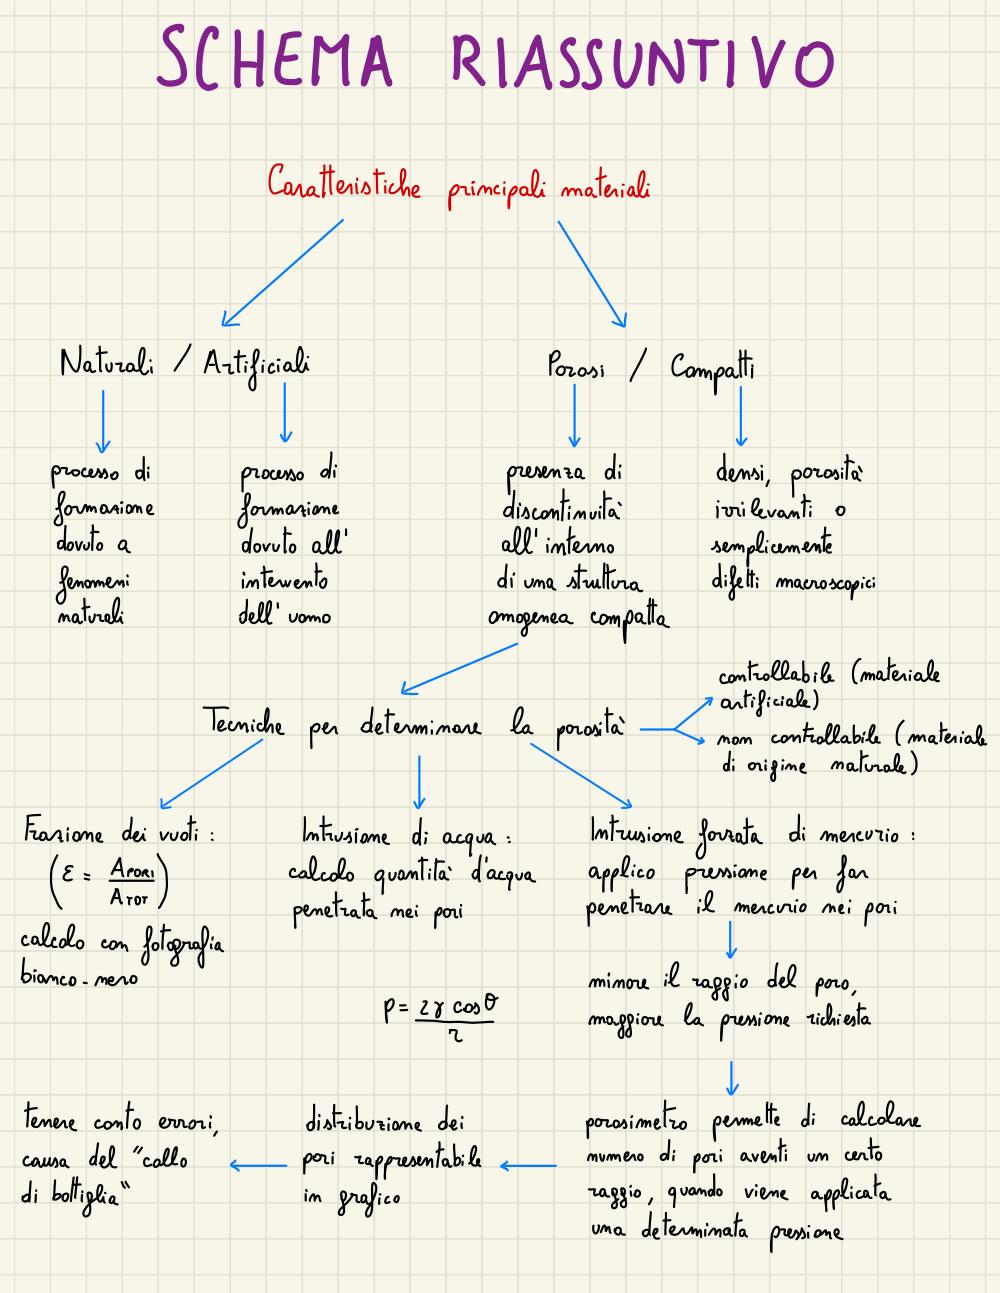 SCHEMA RIASSUNTIVO
Caratteristiche principali materiali
Naturali / Artificiali
Porosi / Compatti
processo di
formazione
dovuto a
fenomeni
naturali
processo di
formazione
dovuto all'
intervento
dell'uomo
presenza di
discontinuità
all'interno
di una struttura
omogenea compatta
densi, porosità
irrilevanti o
semplicemente
difetti macroscopici
Tecniche per determinare la porosità
controllabile (materiale
artificiale)
non controllabile (materiale
di origine naturale)
Frazione dei vuoti :
(ε = A PORI / A TOT)
calcolo con fotografia
bianco-nero
Intrusione di acqua :
calcolo quantità d'acqua
penetrata nei pori
Intrusione forzata di mercurio :
applico pressione per far
penetrare il mercurio nei pori
minore il raggio del poro,
maggiore la pressione richiesta
p = 2γ cosθ / r
porosimetro permette di calcolare
numero di pori aventi un certo
raggio, quando viene applicata
una determinata pressione
distribuzione dei
pori rappresentabile
in grafico
tenere conto errori,
causa del "collo
di bottiglia"